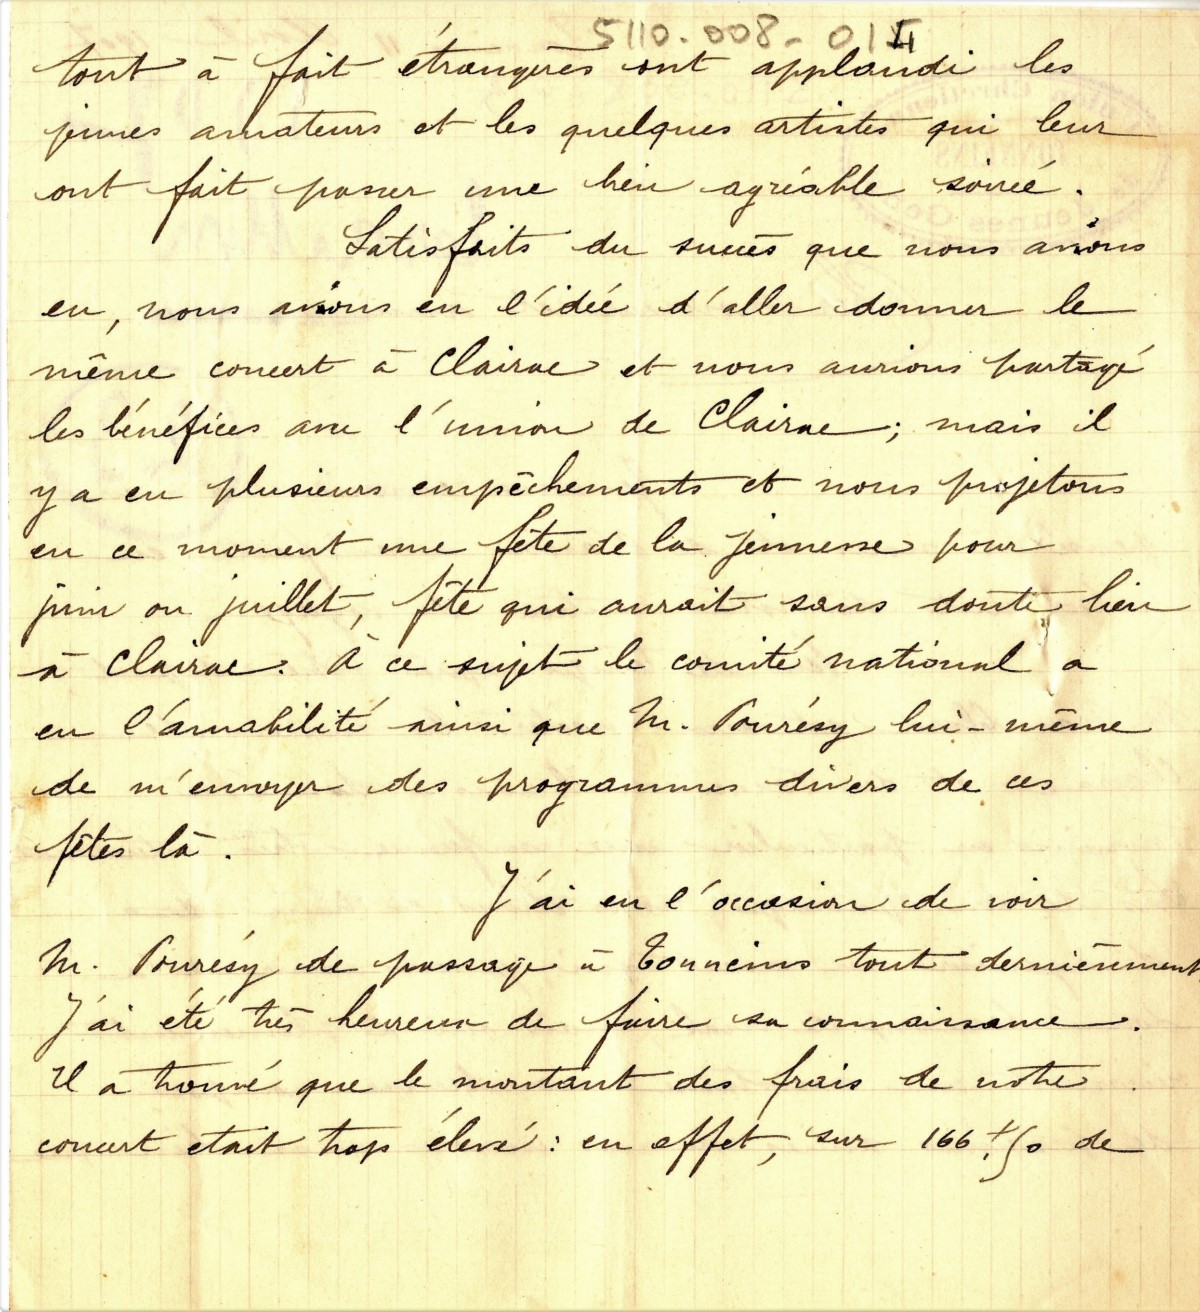 5110.008-014
tout à fait étrangères ont applaudi les
jeunes amateurs et les quelques artistes qui leur
ont fait passer une bien agréable soirée.
Satisfaits du succès que nous avions
eu, nous avions eu l'idée d'aller donner le
même concert à Clairac et nous aurions partagé
les bénéfices avec l'union de Clairac; mais il
y a eu plusieurs empêchements et nous projetons
en ce moment une fête de la jeunesse pour
juin ou juillet, fête qui aurait sans doute lieu
à Clairac. À ce sujet le comité national a
eu l'amabilité ainsi que M. Pourésy lui-même
de m'envoyer des programmes divers de ces
fêtes là.
J'ai eu l'occasion de voir
M. Pourésy de passage à Tonneins tout dernièrement
J'ai été très heureux de faire sa connaissance.
Il a trouvé que le montant des frais de notre
concert etait trop élevé: en effet, sur 166 f. 50 de